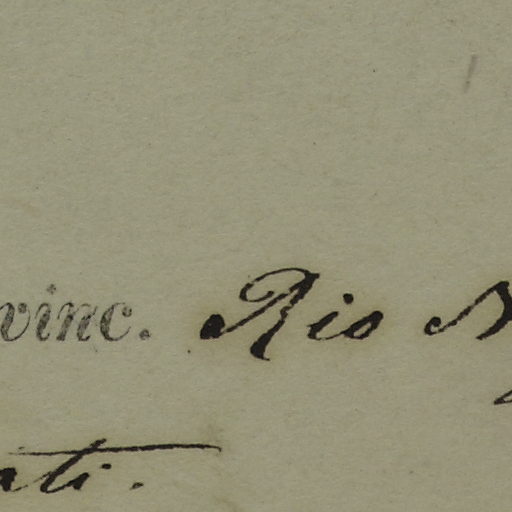 vinc. Rio
ati.